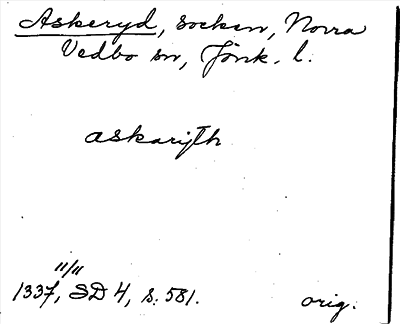 Askeryd, socken, Norra
Vedbo sn, Jönk. l.
askarijth
11/11
1337, SD 4, s. 581.
orig.